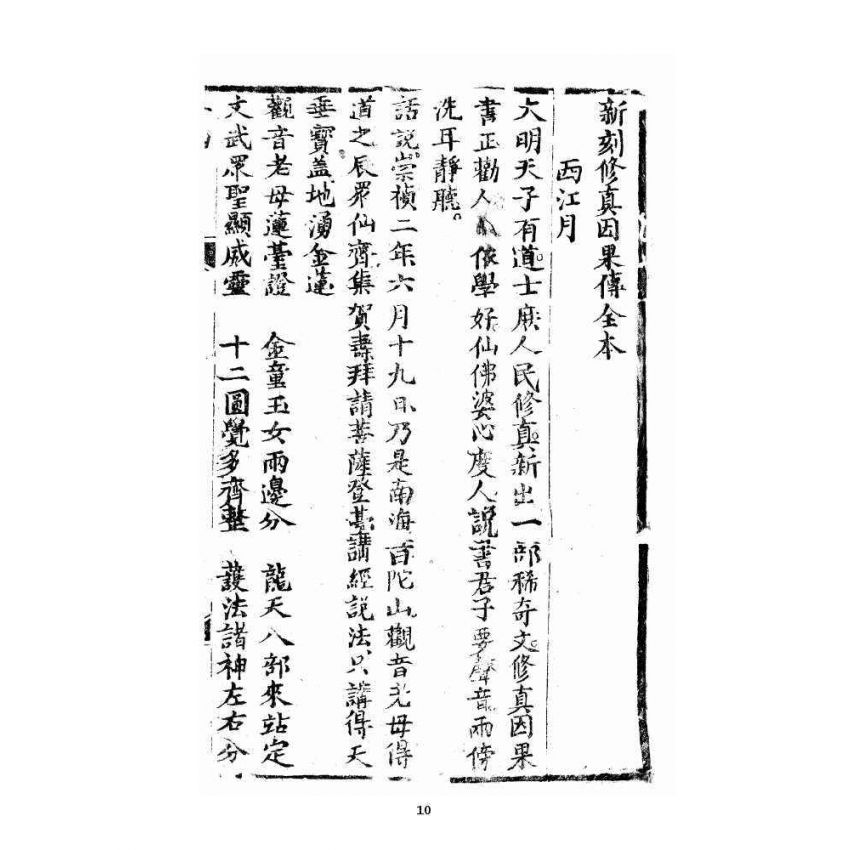 新刻修真因果傳全本
西江月
大明天子有道士庶人民修真新出一部稀奇文修真因果
書正勸人人依學好仙佛婆心度人說書君子要聲音兩傍
洗耳靜聽。
話說崇禎二年六月十九日乃是南海百陀山觀音老母得
道之辰眾仙齊集賀壽拜請菩薩登臺講經說法只講得天
垂寶盖地湧金蓮
觀音老母蓮臺證 金童玉女兩邊分 龍天八部來站定
文武眾聖顯威靈 十二圓覺多齊整 護法諸神左右分
10